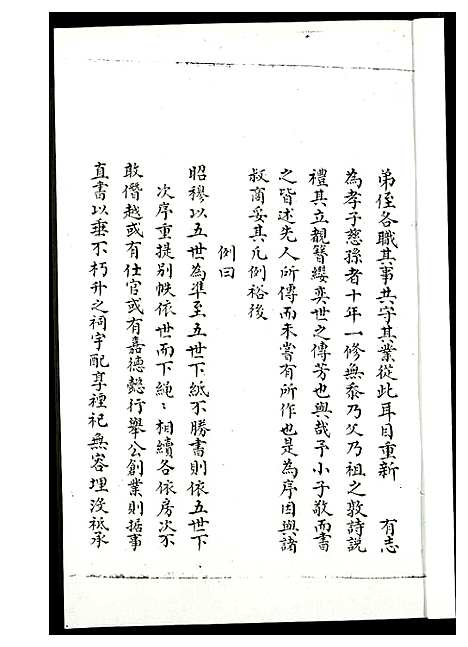 弟侄各職其事共守其業從此耳目重新　有志
為孝子慈孫者十年一修無忝乃父乃祖之敦詩說
禮其立觀簪纓奕世之傳芳也與哉予小子敬而書
之皆述先人所傳而未嘗有所作也是為序因與諸
叔商妥其凡例裕後
例曰
昭穆以五世為準至五世下紙不勝書則依五世下
次序重提別帙依世而下繩〻相續各依房次不
敢僭越或有仕官或有嘉德懿行舉公創業則據事
直書以垂不朽升之祠宇配享禋祀無容埋沒祗承